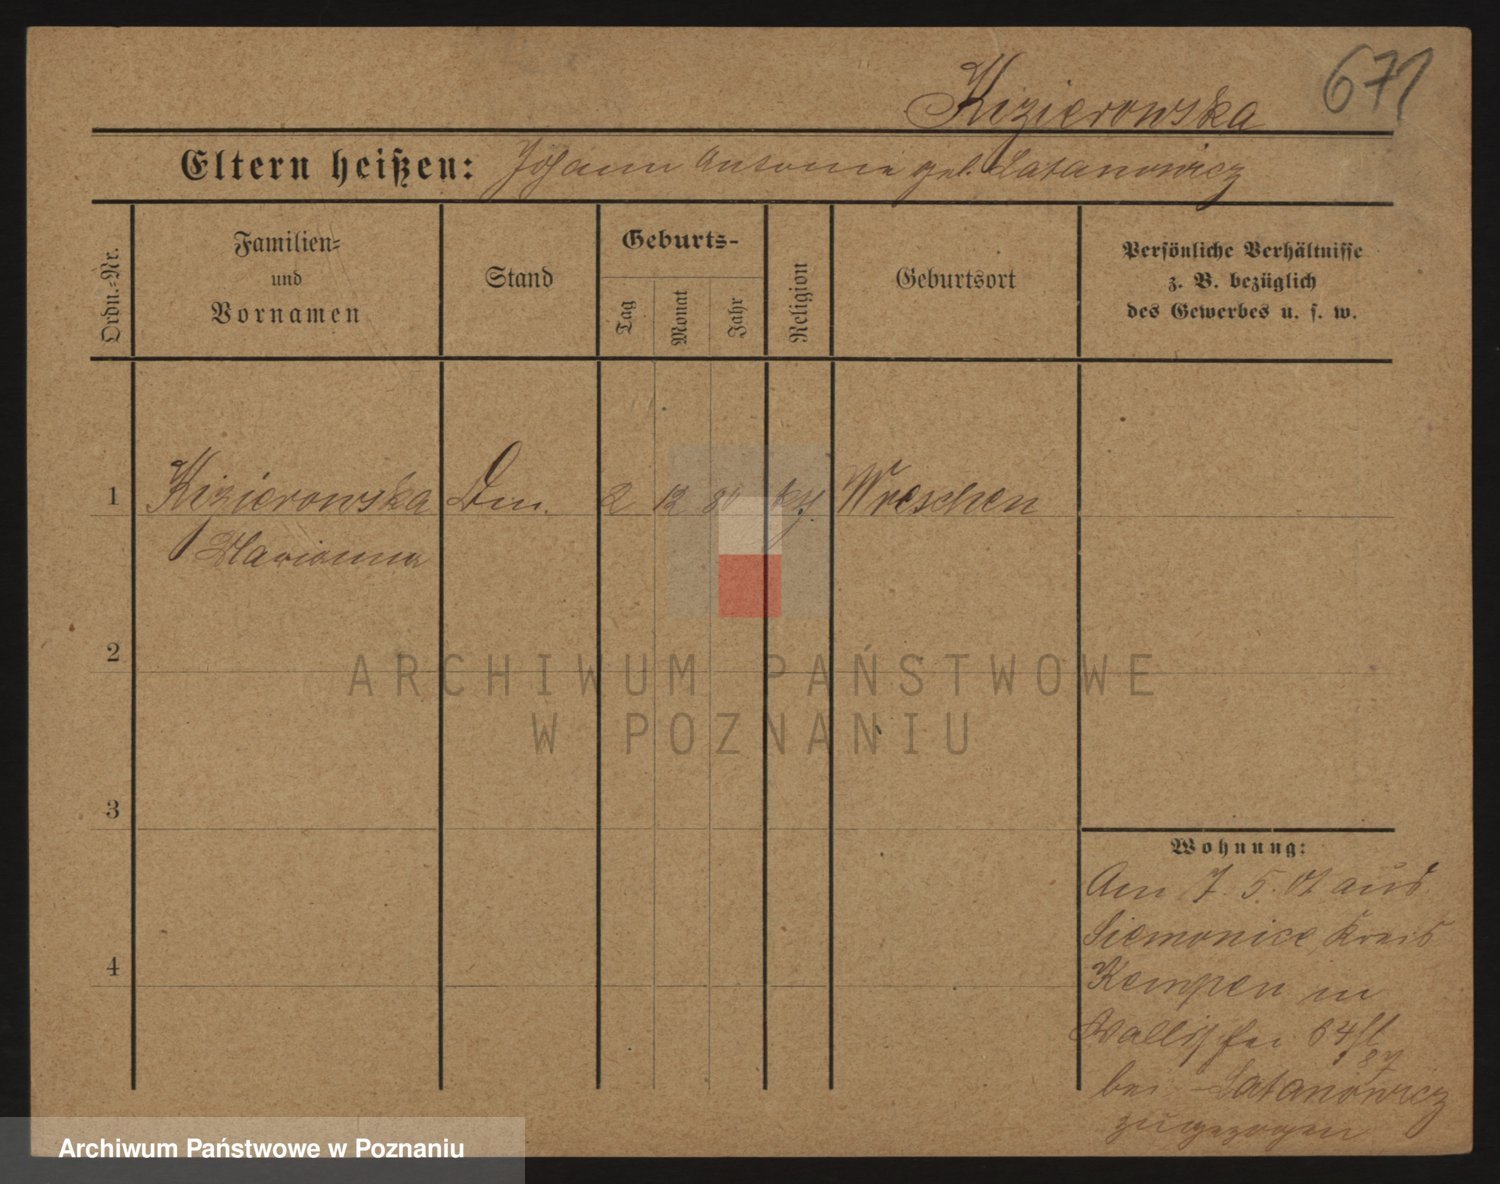 Kizierowska
671
Eltern heißen: Johann Antonie geb. Latanowicz
Ordn.-Nr.
Familien-
und
Vornamen
Stand
Geburts-
Tag
Monat
Jahr
Religion
Geburtsort
Persönliche Verhältnisse
z. B. bezüglich
des Gewerbes u. s. w.
1 Kizierowska 2 12 Wreschen
Marianna
2
3
4
Wohnung:
Am 7. 5. 01 aus
Siemonice Kreis
Kempen in
Wallischei 64
bei Latanowicz
zugezogen
ARCHIWUM PAŃSTWOWE
W POZNANIU
Archiwum Państwowe w Poznaniu